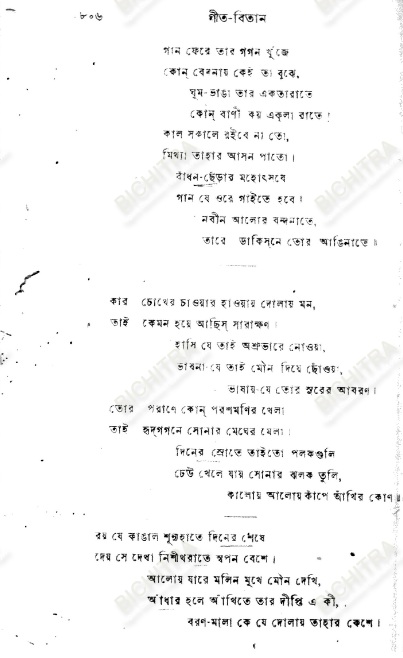 ৮০৬ গীত-বিতান
গান ফেরে তার গগন খুঁজে
কোন্ বেদনায় কেই তা বুঝে,
ঘুম-ভাঙা তার একতারাতে
কোন্ বাণী কয় একলা রাতে!
কাল সকালে রইবে না তো,
মিথ্যা তাহার আসন পাতো।
বাঁধন-ছেঁড়ার মহোৎসবে
গান যে ওরে গাইতে হবে।
নবীন আলোর বন্দনাতে,
তারে ডাকিস্‌নে তোর আঙিনাতে॥
কার চোখের চাওয়ার হাওয়ায় দোলায় মন,
তাই কেমন হয়ে আছিস্ সারাক্ষণ।
হাসি যে তাই অশ্রুভারে নোওয়া,
ভাবনা-যে তাই মৌন দিয়ে ছোঁওয়া,
ভাষায়-যে তোর সুরের আবরণ।
তোর পরাণে কোন্ পরশমণির খেলা
তাই হৃদ্‌গগনে সোনার মেঘের মেলা।
দিনের স্রোতে তাইতো পলকগুলি
ঢেউ খেলে যায় সোনার ঝলক তুলি,
কালোয় আলোয় কাঁপে আঁখির কোণ॥
রয় যে কাঙাল শূন্যহাতে দিনের শেষে
দেয় সে দেখা নিশীথরাতে স্বপন বেশে।
আলোয় যারে মলিন মুখে মৌন দেখি,
আঁধার হলে আঁখিতে তার দীপ্তি এ কী,
বরণ-মালা কে যে দোলায় তাহার কেশে।
BICHITRA